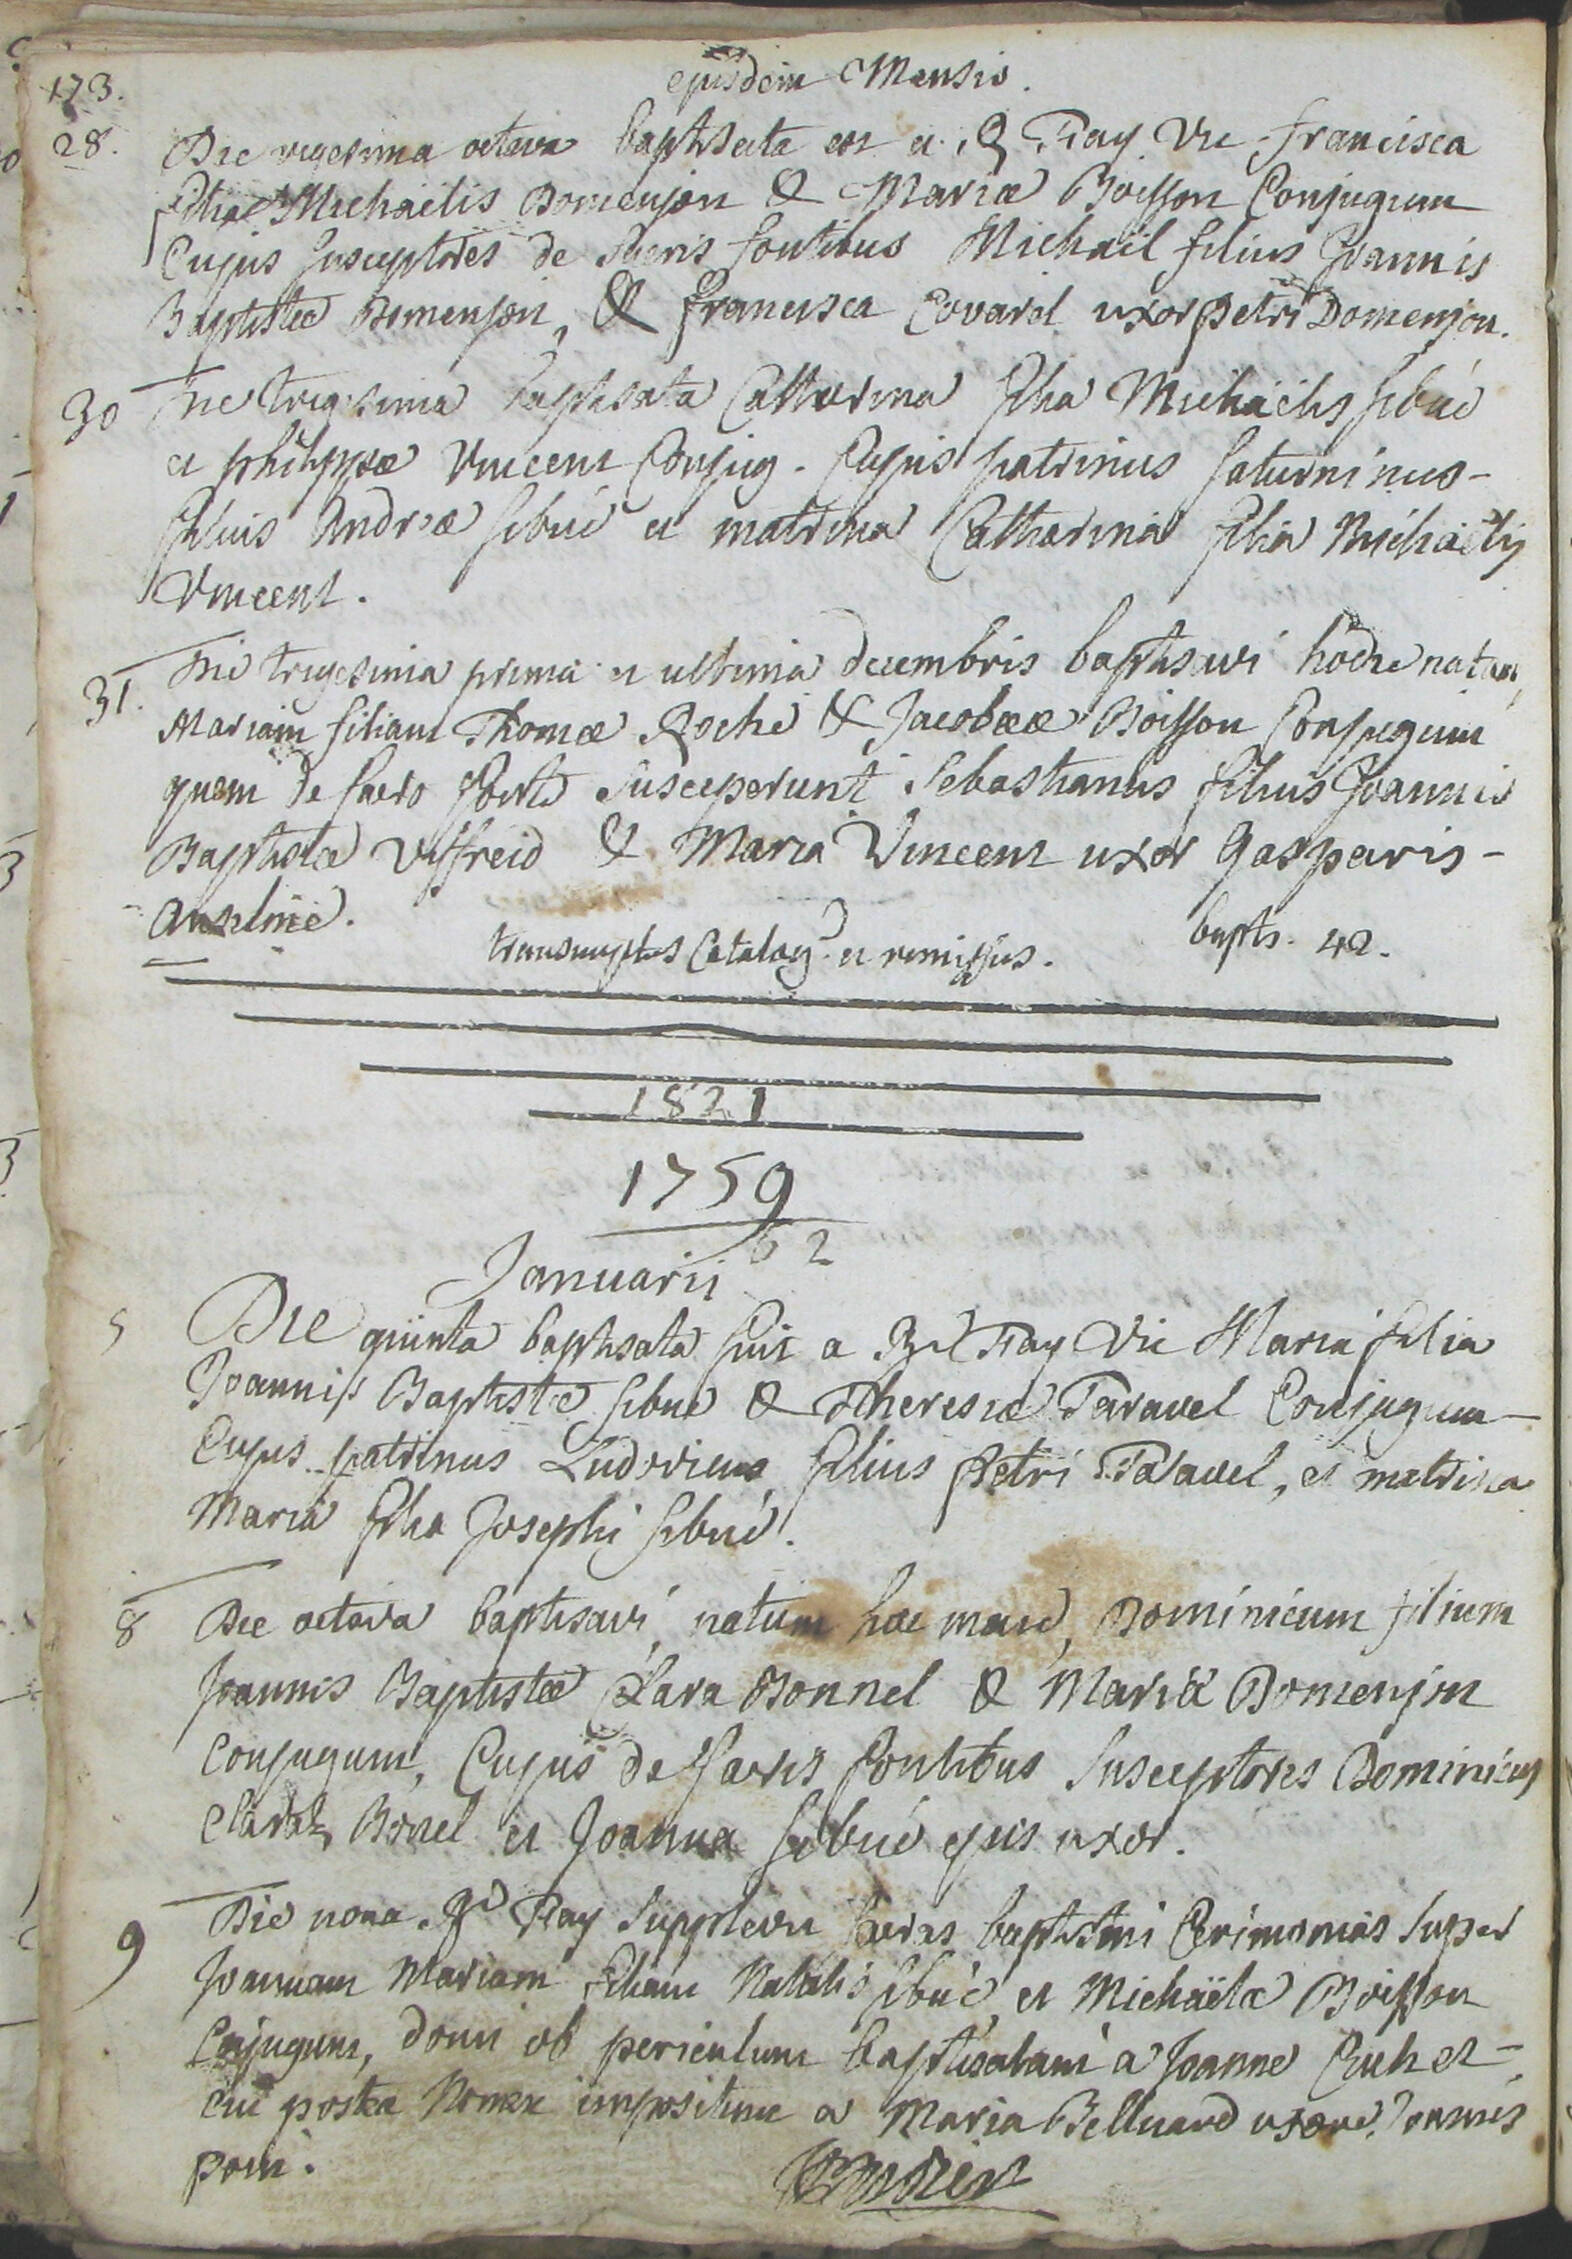 ejusdem Mensis.
173.
28. Die vigesima octava baptisata est a R Fay Vic francisca
filia Michaelis Domenjon & Mariæ Boisson Conjugum
Cujus susceptores de sacris fontibus Michael filius Joannis
Baptistæ Domenjon, & francisca Covarel uxor petri Domenjon.
30 Die trigesima baptisata Catharina filia Michäelis sibué
et philippæ Vincent Conjug. Cujus patrinus saturninus -
filius Andreæ sibué et matrina Catharina filia Michäelis
Vincent.
31. Die trigesima prima et ultima decembris baptisavi hodie natam
Mariam filiam Thomæ Roche & Jacobææ Boisson Conjugum
quam de sacro fonte susceperunt Sebastianus filius Joannis
Baptistæ Viffreid & Maria Vincent uxor gasparis -
anselme.
transcriptus Catalog. et remissus. bapts. 42.
1821
1759
62
Januarii
5 Die quinta baptisata fuit a Rd Fay Vic Maria filia
Joannis Baptistæ sibué & Theresiæ Taravel Conjugum -
Cujus patrinus Ludovicus filius petri Taravel, et matrina
Maria filia Josephi sibué.
8 Die octava baptisavi natum hoc mane, Dominicum filium
Joannis Baptistæ Clara Bonnel & Mariæ Domenjon
Conjugum, Cujus de sacris fontibus susceptores Dominicus
Claraz Bonel et Joanna sibué ejus uxor.
9 Die nona Rd Fay supplevit sacras baptismi Cerimonias super
Joannam Mariam filiam Natalis sibué et Michäelæ Boisson
Conjugum, domi ob periculum baptisatam a Joanne
cui postea Nomen impositum a Maria Belluard uxore Joannis